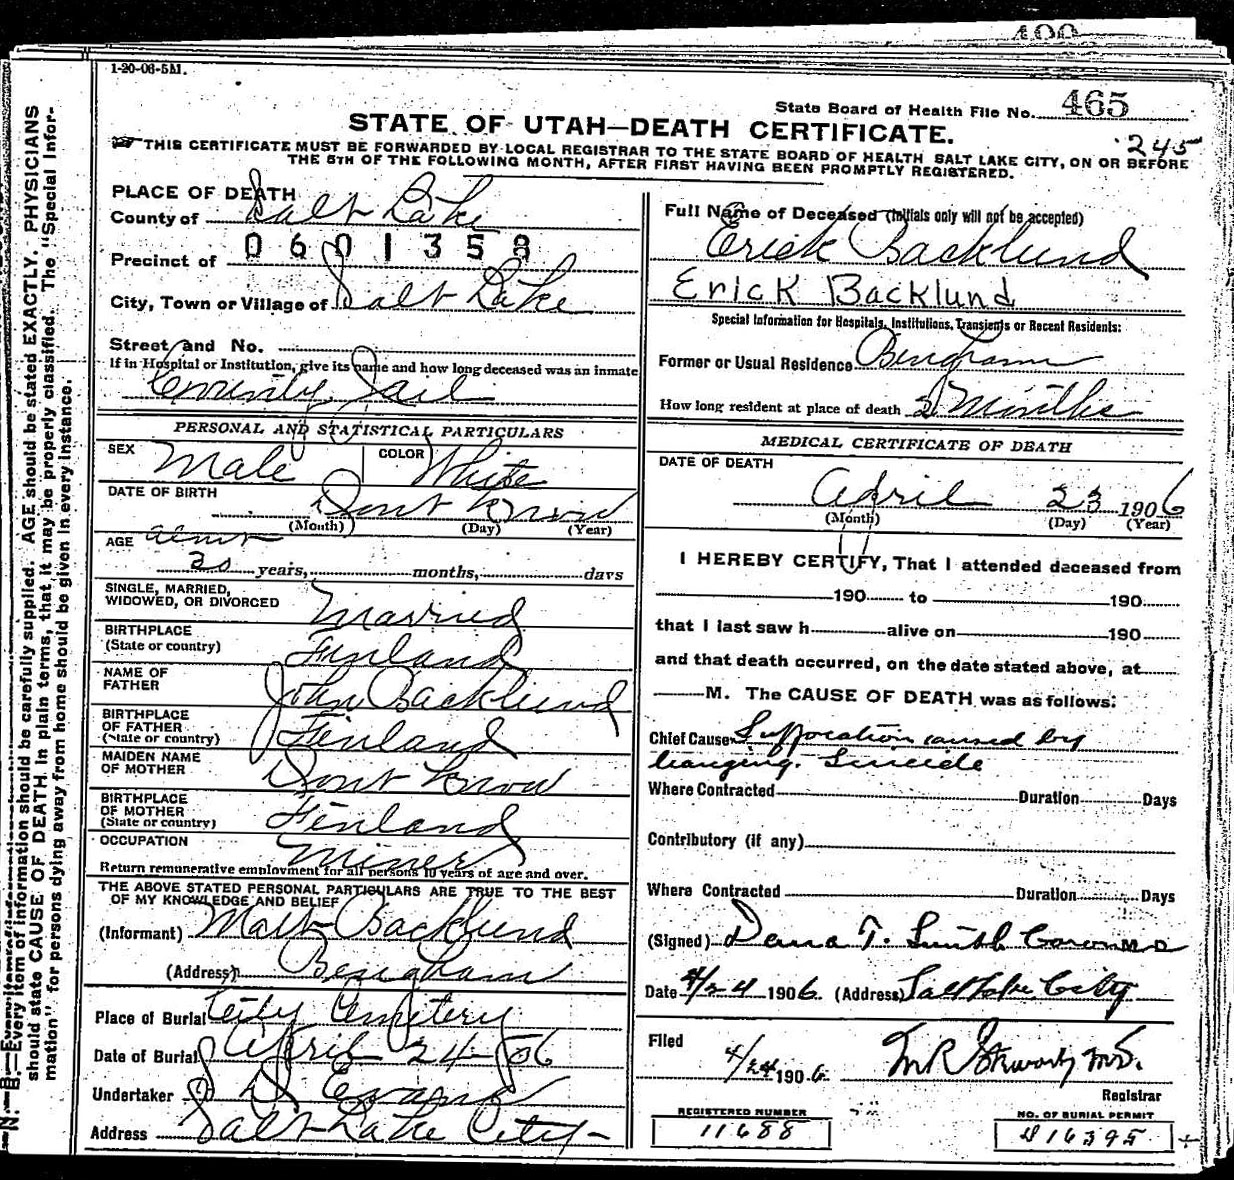 1-20-06-5M.
State Board of Health File No. 465
STATE OF UTAH—DEATH CERTIFICATE.
245
THIS CERTIFICATE MUST BE FORWARDED BY LOCAL REGISTRAR TO THE STATE BOARD OF HEALTH SALT LAKE CITY, ON OR BEFORE
THE 5TH OF THE FOLLOWING MONTH, AFTER FIRST HAVING BEEN PROMPTLY REGISTERED.
PLACE OF DEATH
County of Salt Lake
0601358
Precinct of
City, Town or Village of Salt Lake
Street and No.
If in Hospital or Institution, give its name and how long deceased was an inmate
County Jail
PERSONAL AND STATISTICAL PARTICULARS
SEX Male COLOR White
DATE OF BIRTH Dont Know
(Month) (Day) (Year)
AGE about
years, months, days
SINGLE, MARRIED,
WIDOWED, OR DIVORCED Married
BIRTHPLACE
(State or country) Finland
NAME OF
FATHER John Backlund
BIRTHPLACE
OF FATHER
(State or country) Finland
MAIDEN NAME
OF MOTHER Dont Know
BIRTHPLACE
OF MOTHER
(State or country) Finland
OCCUPATION Miner
Return remunerative employment for all persons 10 years of age and over.
THE ABOVE STATED PERSONAL PARTICULARS ARE TRUE TO THE BEST
OF MY KNOWLEDGE AND BELIEF
(Informant) Matt Backlund
(Address) Bingham
Place of Burial City Cemetery
Date of Burial April 24-06
Undertaker Evans
Address Salt Lake City-
Full Name of Deceased (Initials only will not be accepted)
Erick Backlund
Erick Backlund
Special Information for Hospitals, Institutions, Transients or Recent Residents:
Former or Usual Residence Bingham
How long resident at place of death 2 Months
MEDICAL CERTIFICATE OF DEATH
DATE OF DEATH
April 23 1906
(Month) (Day) (Year)
I HEREBY CERTIFY, That I attended deceased from
190 to 190
that I last saw h alive on 190
and that death occurred, on the date stated above, at
M. The CAUSE OF DEATH was as follows:
Chief Cause Suffocation caused by
hanging. Suicide
Where Contracted Duration Days
Contributory (if any)
Where Contracted Duration Days
(Signed) Dana T. Smith Coroner
Date 4/24 1906. (Address) Salt Lake City
Filed
4/24 1906
Registrar
REGISTERED NUMBER
11688
NO. OF BURIAL PERMIT
16395
N. B.—Every item of information should be carefully supplied. AGE should be stated EXACTLY. PHYSICIANS
should state CAUSE OF DEATH in plain terms, that it may be properly classified. The "Special Infor-
mation" for persons dying away from home should be given in every instance.